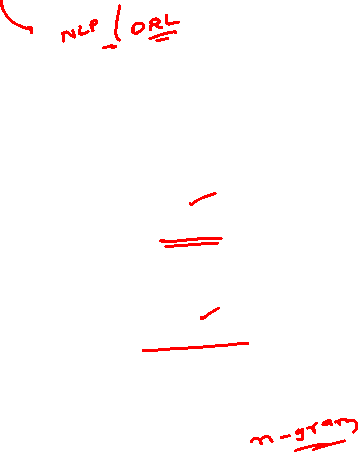 NLP / DRL
n-gram